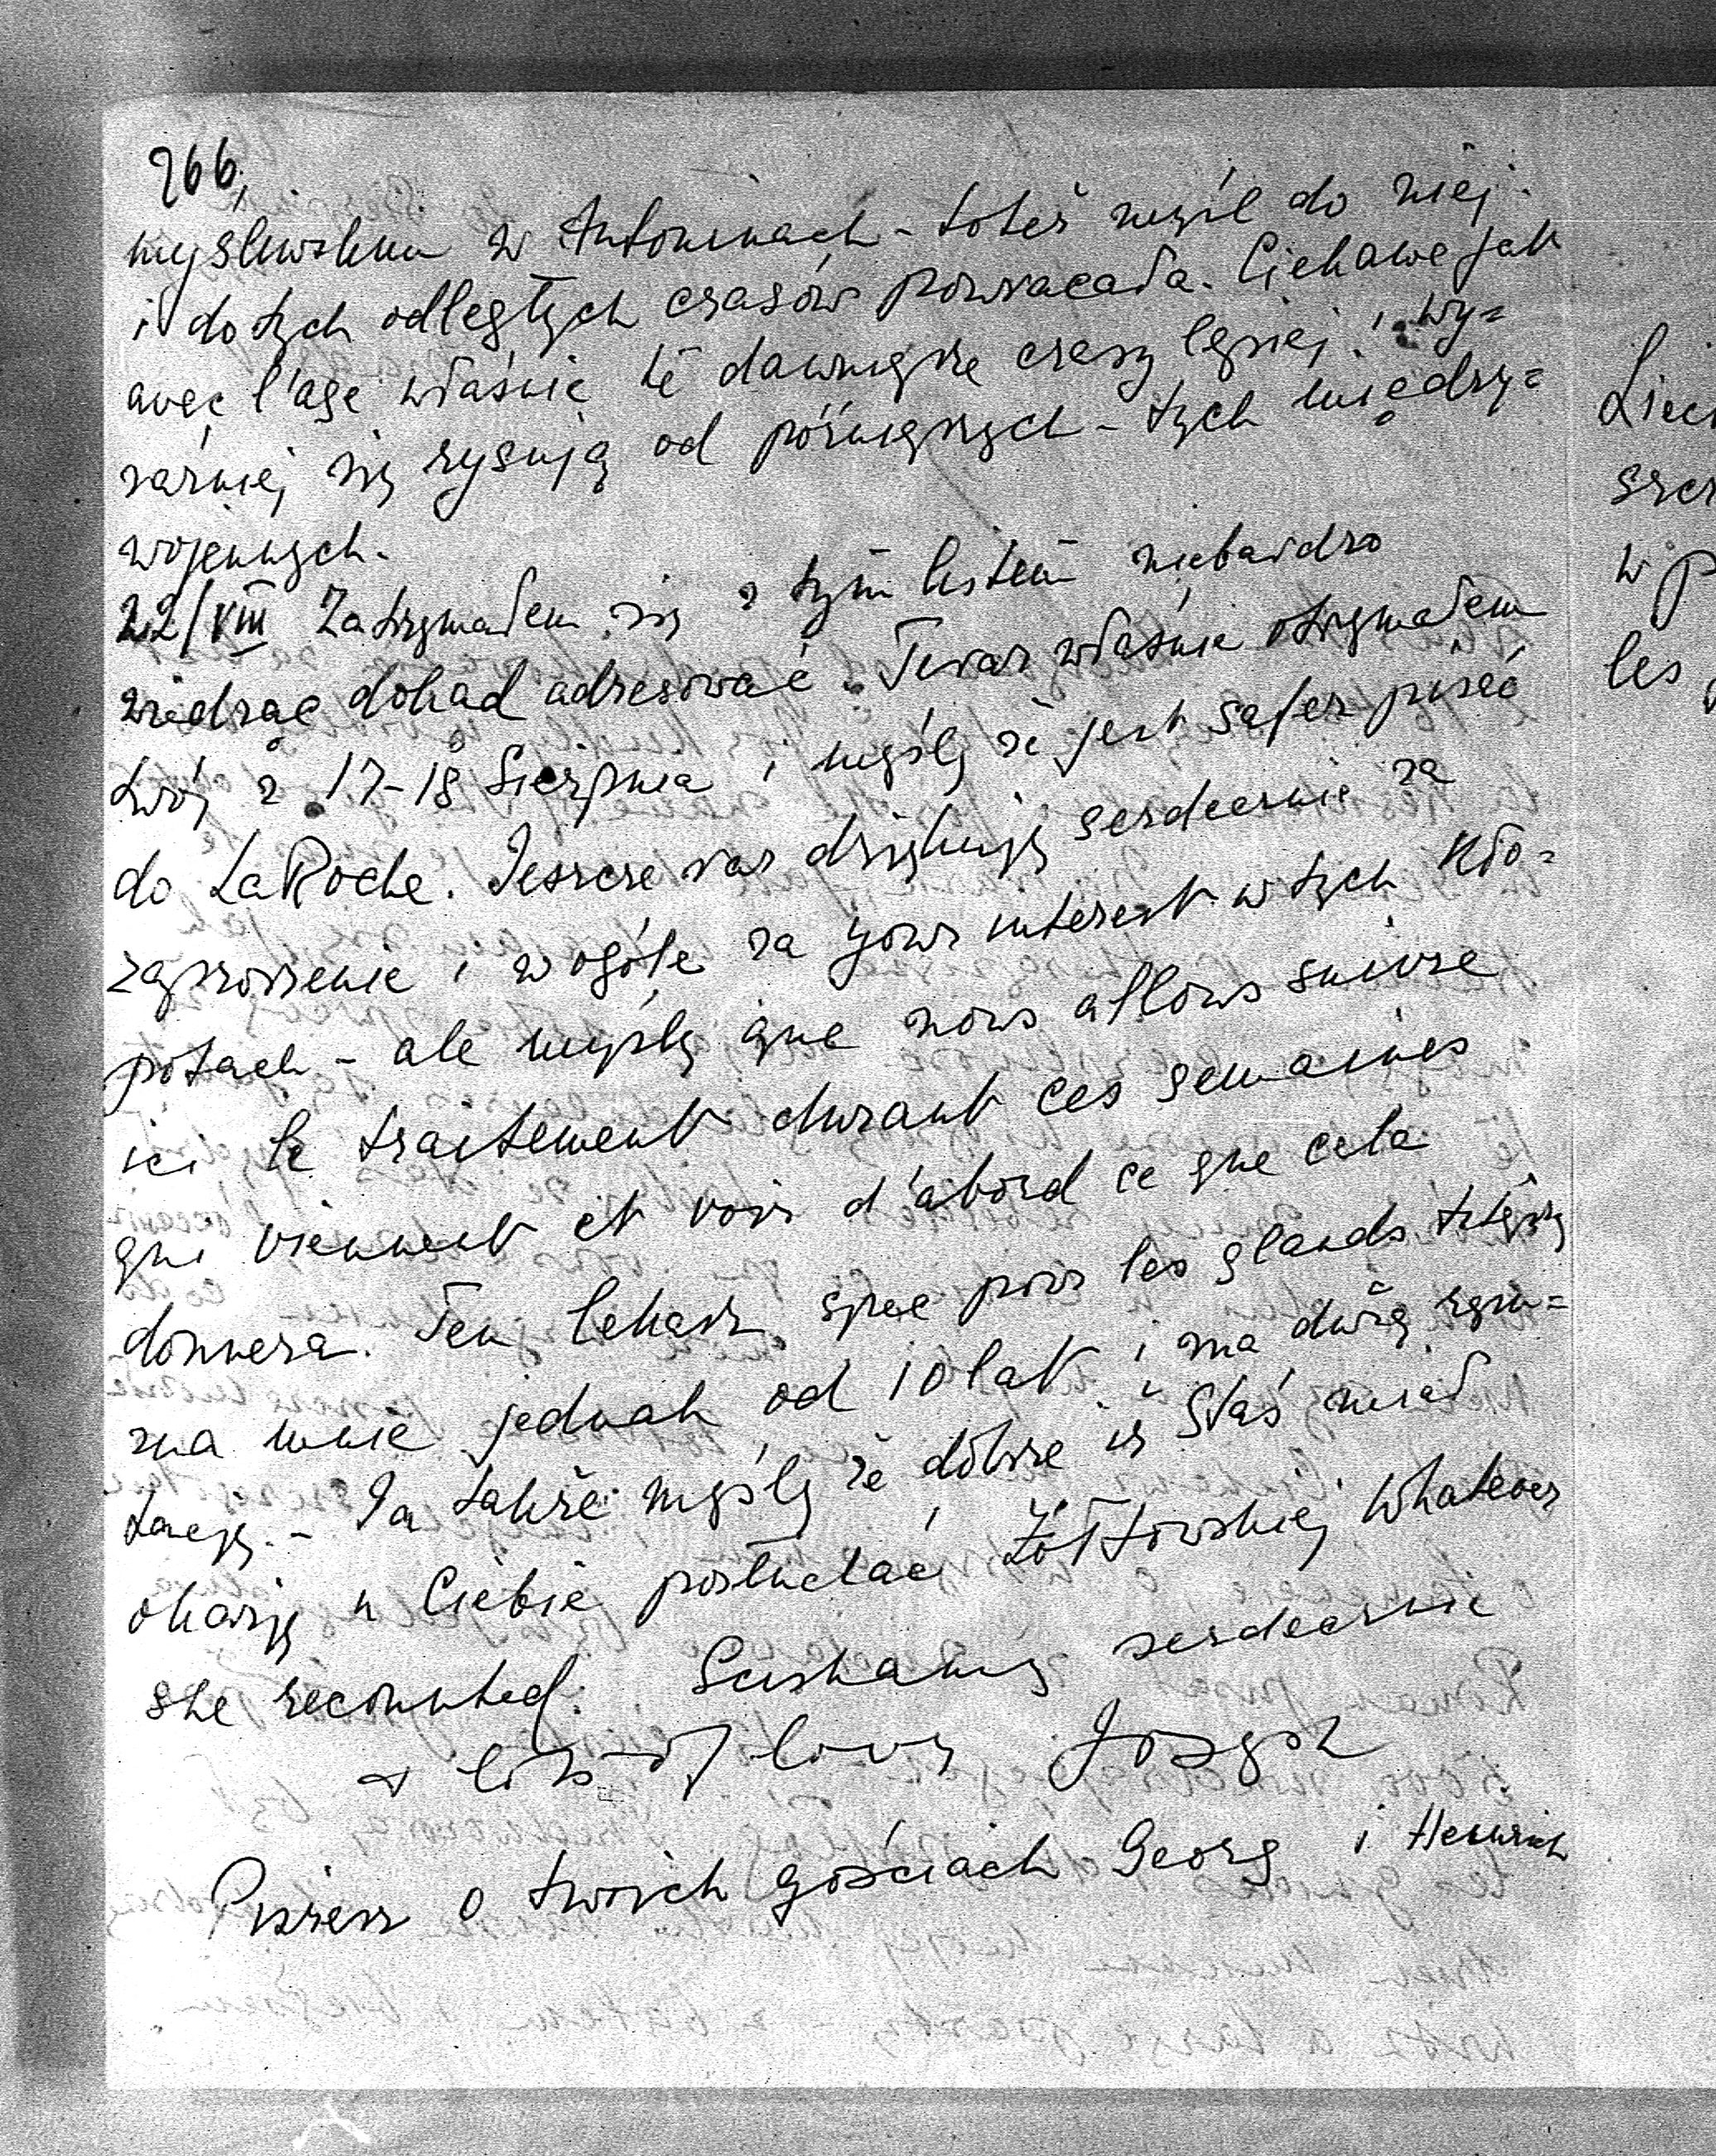 266,
myśliwskim w Antoninach - toteż myśl do niej
i do tych odległych czasów powracała. Ciekawe jak
avec l'age właśnie te dawniejsze czasy lepiej i wy=
raźniej się rysują od późniejszych - tych między=
wojennych.
22/VIII Zatrzymałem się z tym listem niebardzo
wiedząc dokąd adresować. Teraz właśnie otrzymałem
twój z 17-18 Sierpnia i myślę że jest safer pisać
do LaRoche. Jeszcze raz dziękuję serdecznie za
zaproszenie i wogóle za your interest w tych kło=
potach - ale myślę que nous allons suivre
ici le traitement durant ces semaines
qui viennent et voir d'abord ce que cela
donnera. Ten lekarz spec pour les glands tutejszy
zna mnie jednak od 10 lat i ma dużą repu=
tację. - Ja także myślę że dobrze iż Staś miał
okazję u Ciebie posłuchać Żółtowskiej whatever
she recounted. Ściskamy serdecznie
+ lots of love Joseph
Piszesz o twoich gościach Georg i Heinrich
Liech
szcz
w p
les